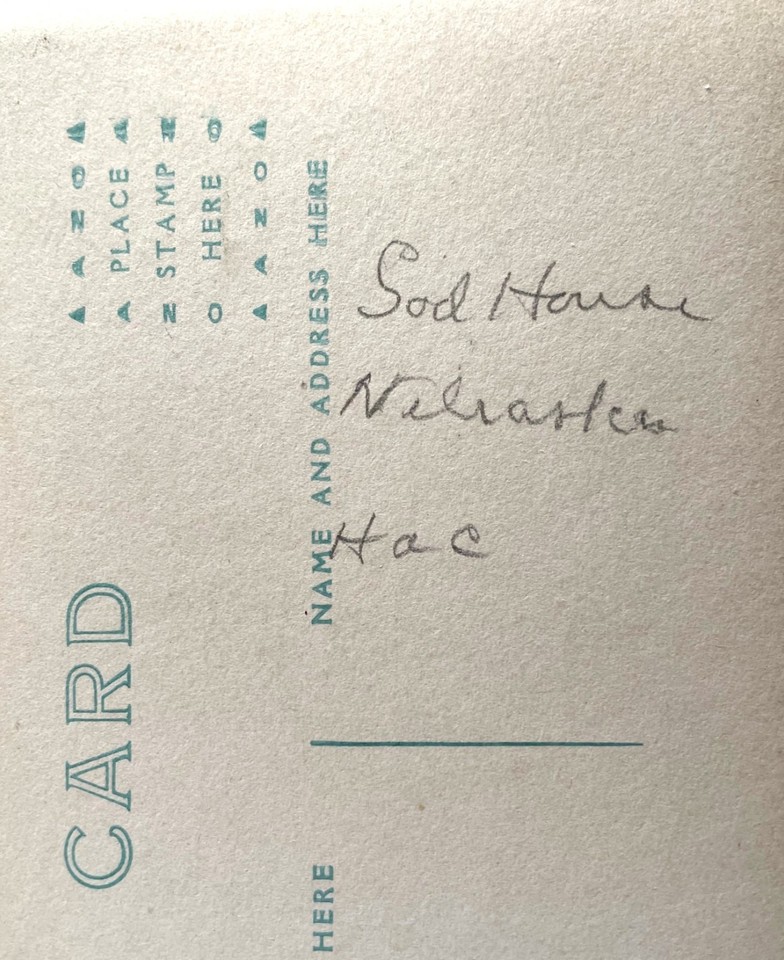 CARD
▲ AZO ▲
A PLACE A
Z STAMP Z
O HERE O
▲ AZO ▲
NAME AND ADDRESS HERE
HERE
Sod House
Nebraska
Hac